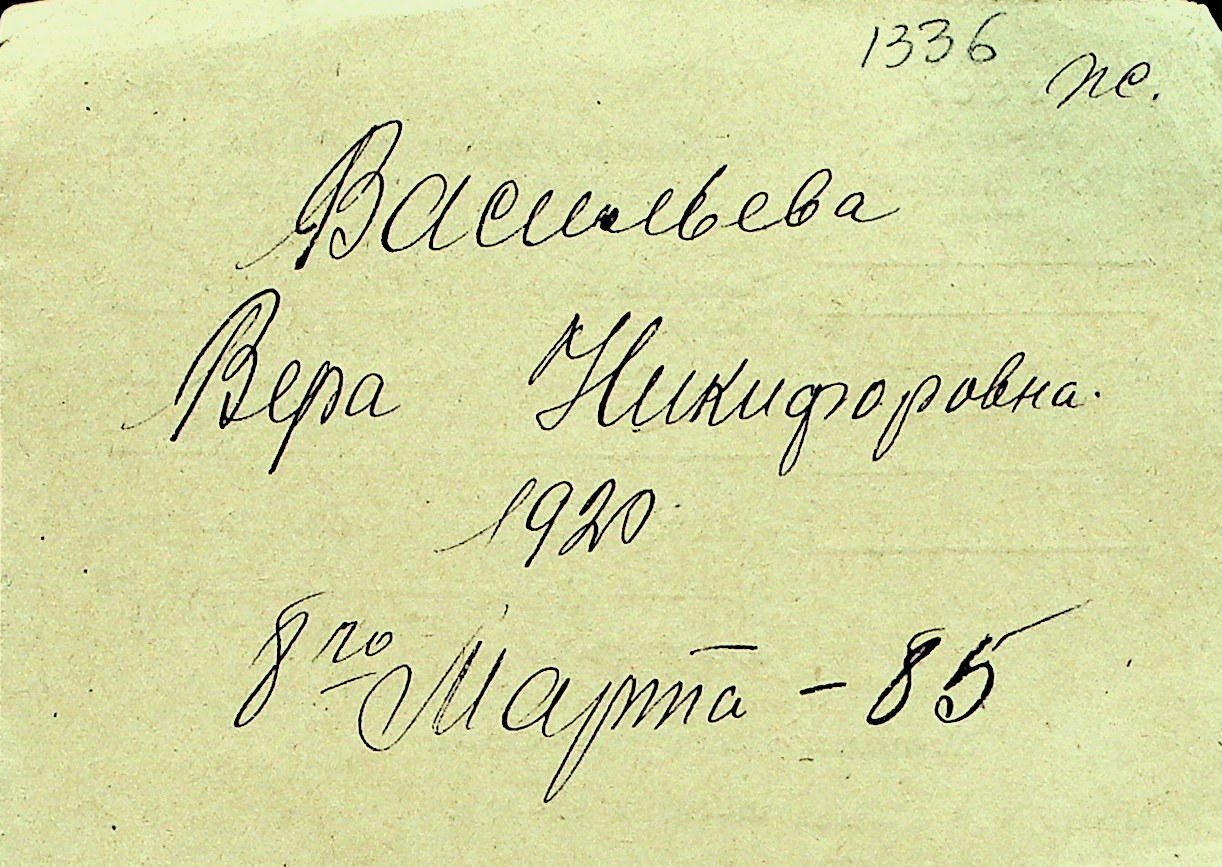 1336
пс.
Васильева
Вера Никифоровна.
1920
8го Марта - 85